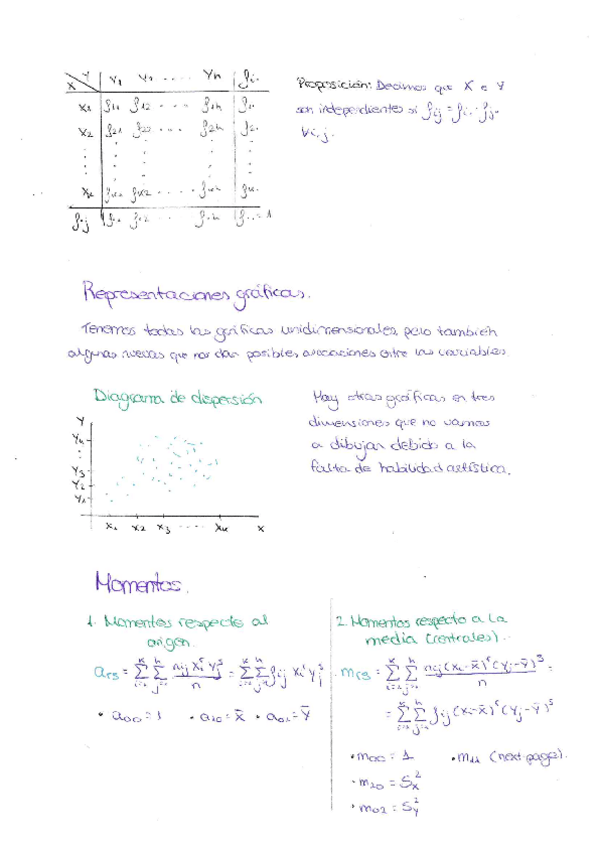 X Y | Y1 Y2 ..... Yh | fi.
X1 | f11 f12 .... f1h | f1.
X2 | f21 f22 .... f2h | f2.
Xk | fk1 fk2 .... fkh | fk.
f.j | f.1 f.2 .... f.h | f..=1
Proposición: Decimos que X e Y
son independientes si fij = fi. · f.j
∀i,j.
Representaciones gráficas.
Tenemos todas las gráficas unidimensionales, pero también
algunas nuevas que nos dan posibles asociaciones entre las variables.
Diagrama de dispersión
Y
Yk
:
Y3
Y2
Y1
X1 X2 X3 .... Xk X
Hay otras gráficas en tres
dimensiones que no vamos
a dibujar debido a la
falta de habilidad artística.
Momentos.
1. Momentos respecto al
origen.
ars = Σ(i=1,k) Σ(j=1,h) nij xi^r yj^s / n = Σ(i=1,k) Σ(j=1,h) fij xi^r yj^s
• a00 = 1 • a10 = x̄ • a01 = ȳ
2. Momentos respecto a la
media (centrales).
mrs = Σ(i=1,k) Σ(j=1,h) nij (xi-x̄)^r (yj-ȳ)^s / n =
= Σ(i=1,k) Σ(j=1,h) fij (xi-x̄)^r (yj-ȳ)^s
• m00 = 1 • m11 (next page).
• m20 = Sx²
• m02 = Sy²